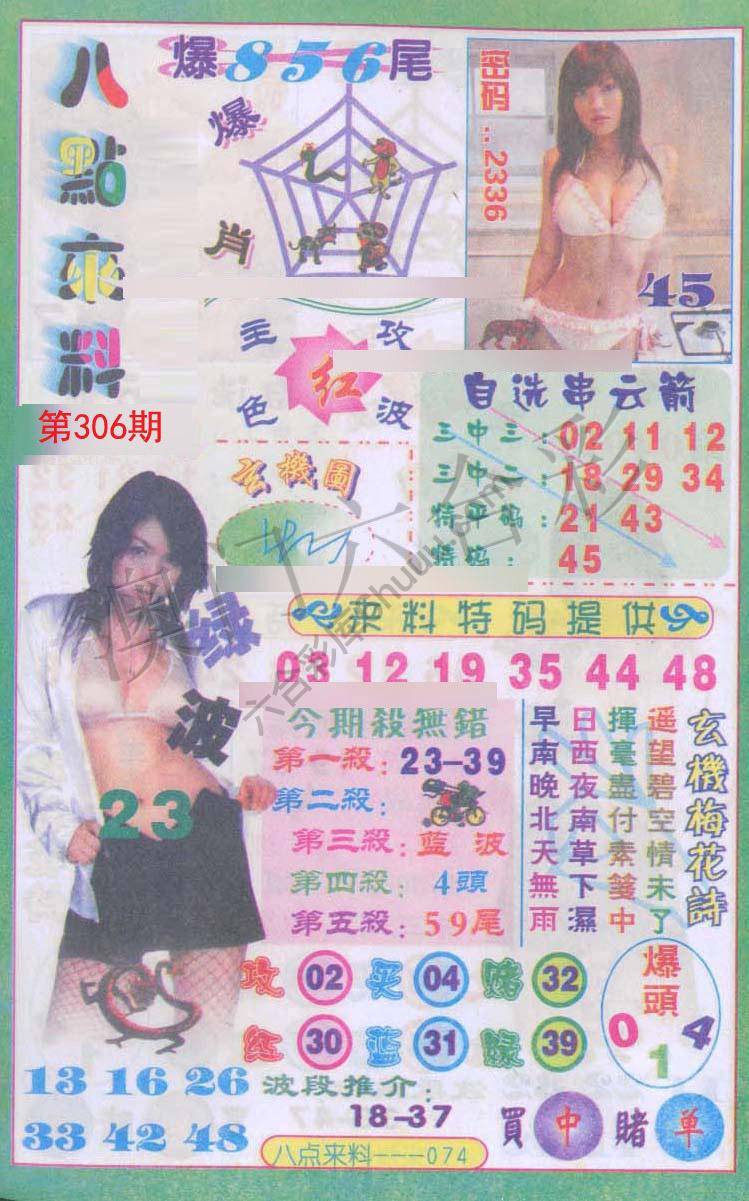 八點來料
第306期
爆856尾
爆肖
密码..2336
45
主攻
红
色波
玄機圖
自选串云箭
三中三:02 11 12
三中二:18 29 34
特平码:21 43
特码:45
来料特码提供
03 12 19 35 44 48
绿波
23
今期殺無錯
第一殺:23-39
第二殺:
第三殺:蓝波
第四殺:4頭
第五殺:59尾
玄機梅花詩
遥望碧空情未了
揮毫盡付素箋中
日西夜南草下濕
早南晚北天無雨
攻 02 买 04 赌 32
红 30 蓝 31 绿 39
爆頭
0 1 4
13 16 26
33 42 48
波段推介:
18-37
買中賭单
八点来料---074
澳门六合彩
六合彩库